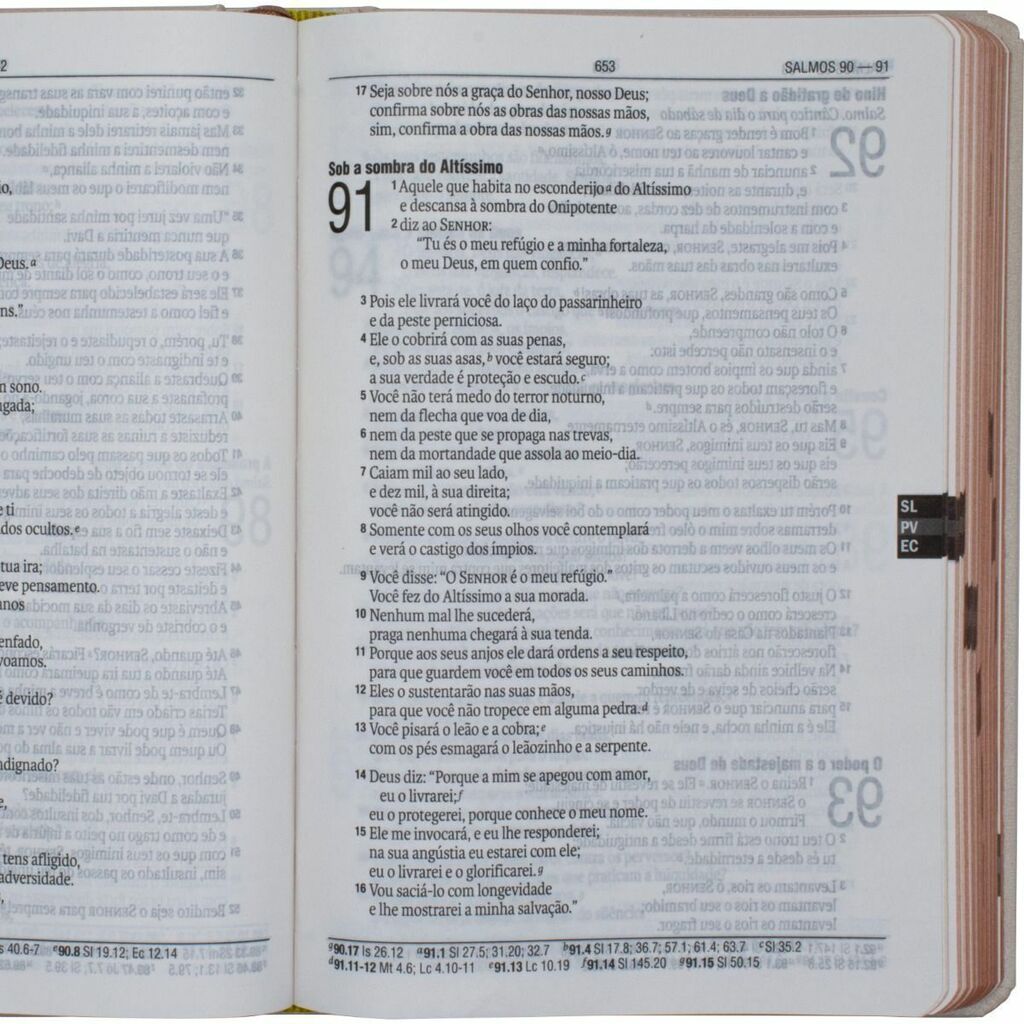 2
io,
Deus.ª
ns."
m sono.
gada;
e ti
dos ocultos.ᵉ
tua ira;
eve pensamento.
anos
enfado,
voamos.
é devido?
ndignado?
e,
tens afligido,
adversidade.
s 40.6-7 ᵉ90.8 Sl 19.12; Ec 12.14
653
SALMOS 90 — 91
17 Seja sobre nós a graça do Senhor, nosso Deus;
confirma sobre nós as obras das nossas mãos,
sim, confirma a obra das nossas mãos.ᵍ
Sob a sombra do Altíssimo
91
1 Aquele que habita no esconderijoª do Altíssimo
e descansa à sombra do Onipotente
2 diz ao SENHOR:
"Tu és o meu refúgio e a minha fortaleza,
o meu Deus, em quem confio."
3 Pois ele livrará você do laço do passarinheiro
e da peste perniciosa.
4 Ele o cobrirá com as suas penas,
e, sob as suas asas,ᵇ você estará seguro;
a sua verdade é proteção e escudo.ᶜ
5 Você não terá medo do terror noturno,
nem da flecha que voa de dia,
6 nem da peste que se propaga nas trevas,
nem da mortandade que assola ao meio-dia.
7 Caiam mil ao seu lado,
e dez mil, à sua direita;
você não será atingido.
8 Somente com os seus olhos você contemplará
e verá o castigo dos ímpios.
9 Você disse: "O SENHOR é o meu refúgio."
Você fez do Altíssimo a sua morada.
10 Nenhum mal lhe sucederá,
praga nenhuma chegará à sua tenda.
11 Porque aos seus anjos ele dará ordens a seu respeito,
para que guardem você em todos os seus caminhos.
12 Eles o sustentarão nas suas mãos,
para que você não tropece em alguma pedra.ᵈ
13 Você pisará o leão e a cobra;ᵉ
com os pés esmagará o leãozinho e a serpente.
14 Deus diz: "Porque a mim se apegou com amor,
eu o livrarei;ᶠ
eu o protegerei, porque conhece o meu nome.
15 Ele me invocará, e eu lhe responderei;
na sua angústia eu estarei com ele;
eu o livrarei e o glorificarei.ᵍ
16 Vou saciá-lo com longevidade
e lhe mostrarei a minha salvação."
ᵍ90.17 Is 26.12 ª91.1 Sl 27.5; 31.20; 32.7 ᵇ91.4 Sl 17.8; 36.7; 57.1; 61.4; 63.7 ᶜSl 35.2
ᵈ91.11-12 Mt 4.6; Lc 4.10-11 ᵉ91.13 Lc 10.19 ᶠ91.14 Sl 145.20 ᵍ91.15 Sl 50.15
SL
PV
EC